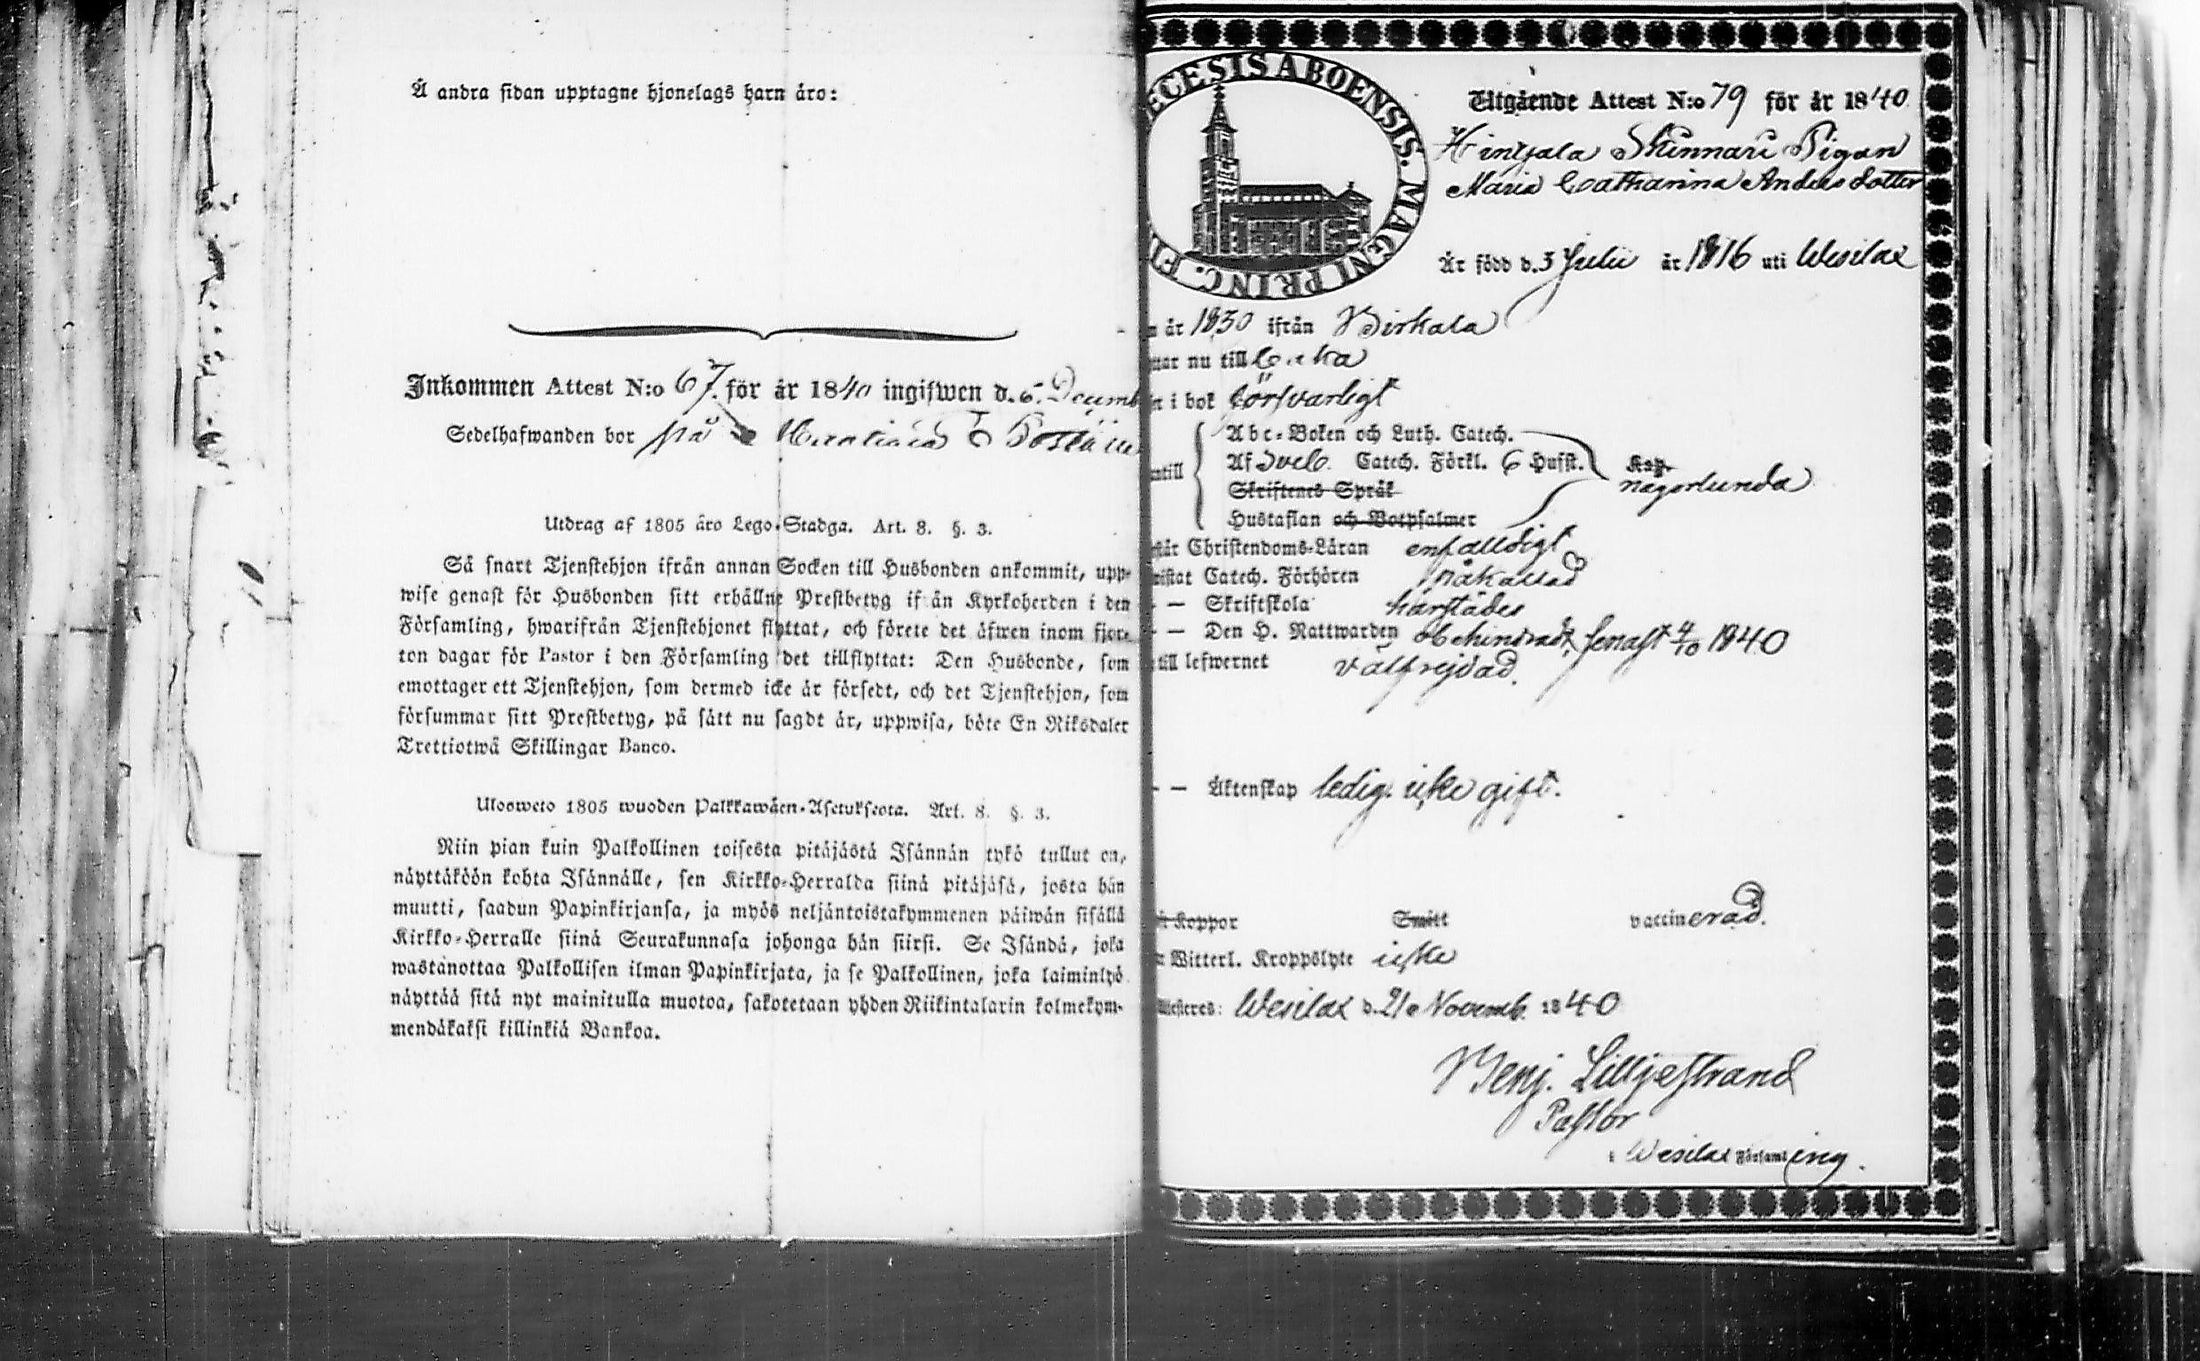 Å andra sidan upptagne hjonelags barn äro:
Inkommen Attest N:o 67 för år 1840 ingifwen d. 6 Decemb
Sedelhafwanden bor på
Utdrag af 1805 års Lego-Stadga. Art. 8. §. 3.
Så snart Tjenstehjon ifrån annan Socken till Husbonden ankommit, upp-
wise genast för Husbonden sitt erhållne Prestbetyg ifrån Kyrkoherden i den
Församling, hwarifrån Tjenstehjonet flyttat, och förete det äfwen inom fjor-
ton dagar för Pastor i den Församling det tillflyttat: Den Husbonde, som
emottager ett Tjenstehjon, som dermed icke är försedt, och det Tjenstehjon, som
försummar sitt Prestbetyg, på sätt nu sagdt är, uppwisa, böte En Riksdaler
Trettiotwå Skillingar Banco.
Ulosweto 1805 wuoden Palkkawäen-Asetuksesta. Art. 8. §. 3.
Niin pian kuin Palkollinen toisesta pitäjästä Isännän tykö tullut on,
näyttäköön kohta Isännälle, sen Kirkko-Herralda siinä pitäjäsä, josta hän
muutti, saadun Papinkirjansa, ja myös neljäntoistakymmenen päiwän sisällä
Kirkko-Herralle siinä Seurakunnasa johonga hän siirsi. Se Isändä, joka
wastanottaa Palkollisen ilman Papinkirjata, ja se Palkollinen, joka laiminlyö
näyttää sitä nyt mainitulla muotoa, sakotetaan yhden Riikintalarin kolmekym-
mendäkaksi killinkiä Bankoa.
ECESIS ABOENSIS. MAGNI PRINC. FI
Utgående Attest N:o 79 för år 1840
Hinsala Skinnari Pigan
Maria Catharina Anders dotter
Är född d. 5 Julii år 1816 uti Wesilax
n år 1830 ifrån Birkala
nar nu till
i bok försvarligt
Abc-Boken och Luth. Catech.
Af Sveb. Catech. Förkl. 6 Hufst.
Skriftenes Språk
Hustaflan och Botpsalmer
någorlunda
står Christendoms-Läran enfaldigt
wistat Catech. Förhören påkallad
— Skriftskola härstädes
— Den H. Nattwarden obehindrad, senast 4/10 1840
till lefwernet välfrejdad.
— Äktenskap ledig. icke gift.
Koppor Smitt vaccinerad.
Witterl. Kroppslyte icke
Wesilax d. 21 Novemb. 1840
Benj. Lilljestrand
Pastor
i Wesilax Församling.